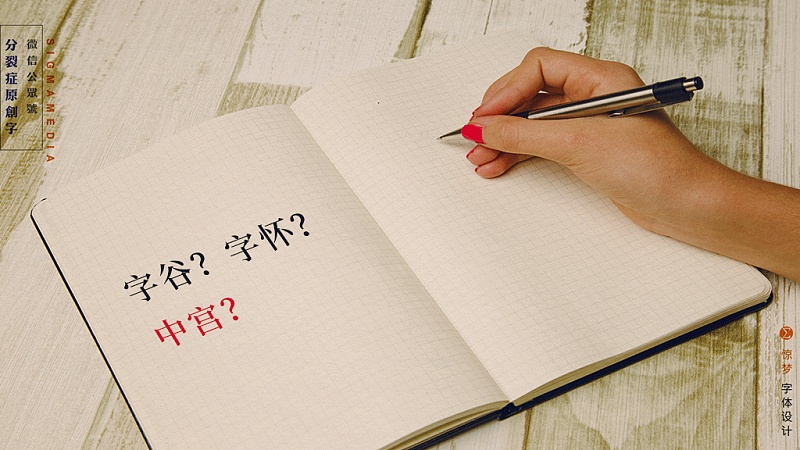 微信公眾號
分裂症原創字
SIGMAMEDIA
字谷？字怀？
中宫？
Σ
惊梦
字体设计